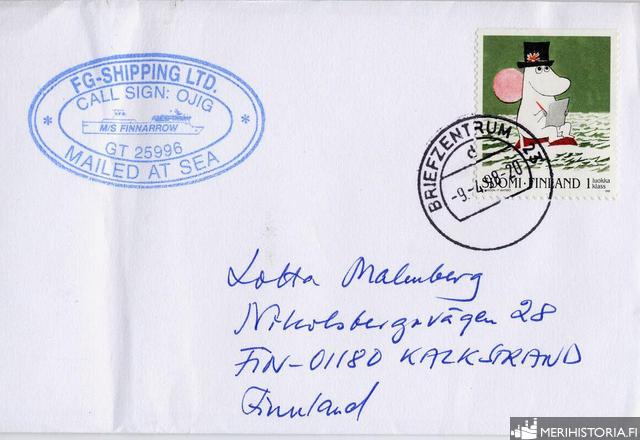 FG-SHIPPING LTD.
CALL SIGN: OJIG
M/S FINNARROW
GT 25996
* MAILED AT SEA *
BRIEFZENTRUM 23
d
-9.-4.98-20
SUOMI·FINLAND 1 luokka
klass
Lotta Malmberg
Nikolsbergsvägen 28
FIN-01180 KALKSTRAND
Finnland
MERIHISTORIA.FI